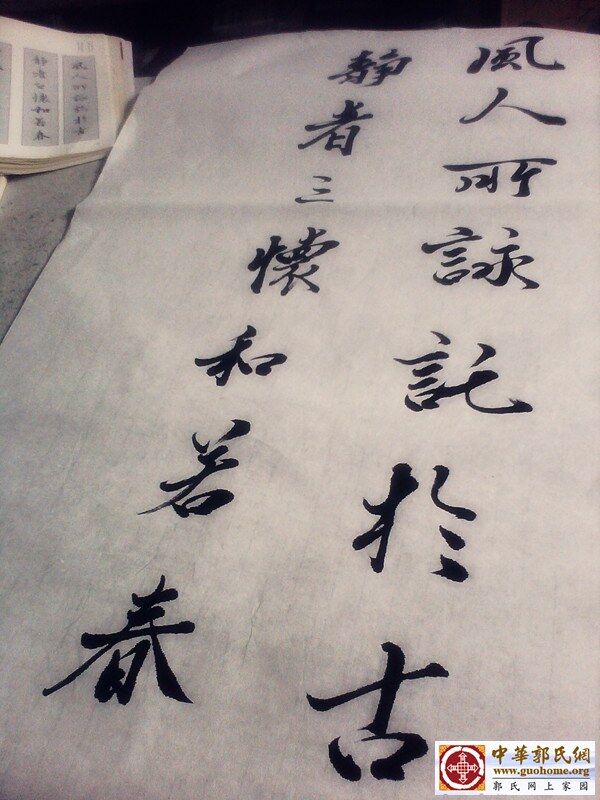 風人所詠託於古
静者之懷和若春
風人所詠託於古
静者之懷和若春
中華郭氏網
www.guohome.org
郭氏网上家园